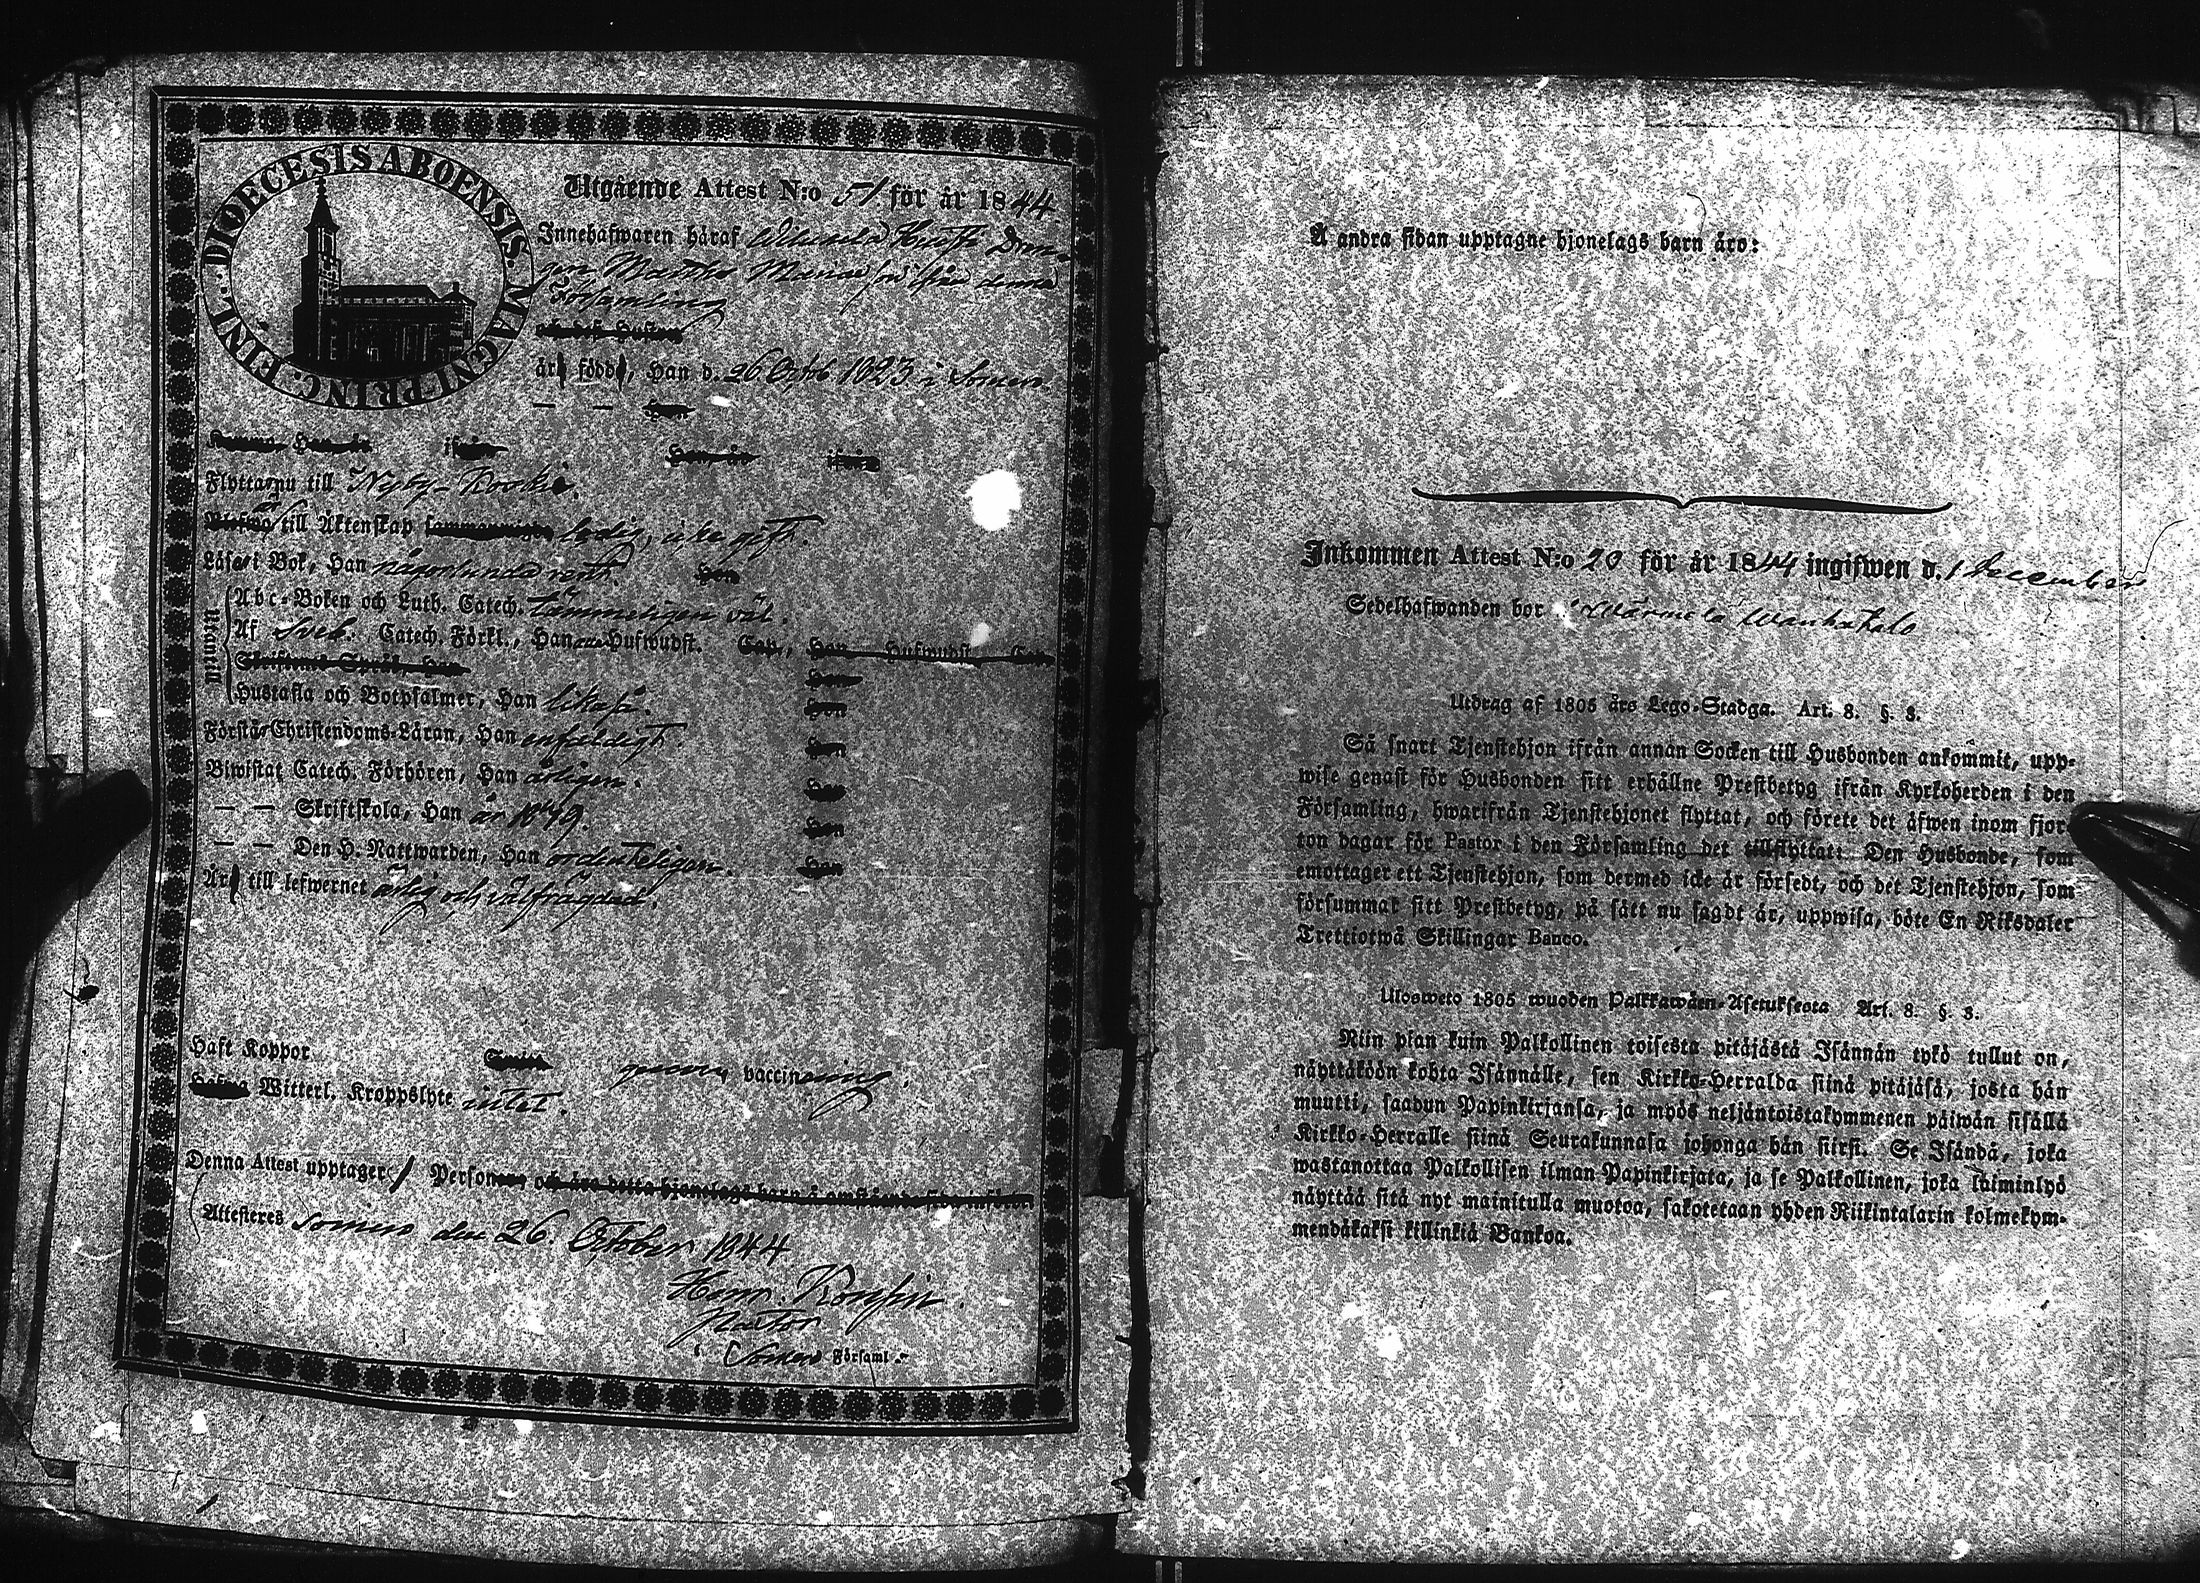 DIOECESIS ABOENSIS. MAGNI PRINC. FINL.
Utgående Attest N:o 51 för år 1844
Innehafwaren häraf
Matths ifrån denna
Församling
är född, Han d. 26 Octob 1823 i Somero
Flyttar nu till Nyby-Koskis.
är till Äktenskap ledig, icke gift.
Läser i Bok, Han någorlunda rent. Hon
Utanwill
Abc-Boken och Luth. Catech. tämmeligen väl.
Af Sveb. Catech. Förkl., Han Hufwudst. Cap., Han Hufwudst. Cap.
Skriftens Språk, Han Hon
Hustafla och Botpsalmer, Han likaså. Hon
Förstår Christendoms-Läran, Han enfaldigt. Hon
Biwistat Catech. Förhören, Han årligen. Hon
— — Skriftskola, Han år 1849. Hon
— — Den H. Nattwarden, Han ordenteligen. Hon
Är till lefwernet ärlig och välfrägdad.
Haft Koppor genom vaccinering.
Witterl. Kroppslyte intet.
Denna Attest upptager 1 Person och äro detta hjonelags barn å omstående sida införda
Attesteras Somero den 26. October 1844
Henr.
Pastor
i Somero Församl.
Å andra sidan upptagne hjonelags barn äro:
Inkommen Attest N:o 20 för år 1844 ingifwen d. 1 December
Sedelhafwanden bor i Wärmelä Wanhatalo
Utdrag af 1805 års Lego-Stadga. Art. 8. §. 3.
Så snart Tjenstehjon ifrån annan Socken till Husbonden ankommit, upp-
wise genast för Husbonden sitt erhållne Prestbetyg ifrån Kyrkoherden i den
Församling, hwarifrån Tjenstehjonet flyttat, och förete det äfwen inom fjor-
ton dagar för Pastor i den Församling det tillflyttat. Den Husbonde, som
emottager ett Tjenstehjon, som dermed icke är försedt, och det Tjenstehjon, som
försummar sitt Prestbetyg, på sätt nu sagdt är, uppwisa, böte En Riksdaler
Trettiotwå Skillingar Banco.
Ulosweto 1805 wuoden Palkkawäen-Asetuksesta Art. 8. §. 3.
Niin pian kuin Palkollinen toisesta pitäjästä Isännän tykö tullut on,
näyttäköön kohta Isännälle, sen Kirkko-Herralda siinä pitäjäsä, josta hän
muutti, saadun Papinkirjansa, ja myös neljäntoistakymmenen päiwän sisällä
Kirkko-Herralle siinä Seurakunnasa johonga hän siirsi. Se Isändä, joka
wastanottaa Palkollisen ilman Papinkirjata, ja se Palkollinen, joka laiminlyö
näyttää sitä nyt mainitulla muotoa, sakotetaan yhden Riikintalarin kolmekym-
mendäkaksi killinkiä Bankoa.